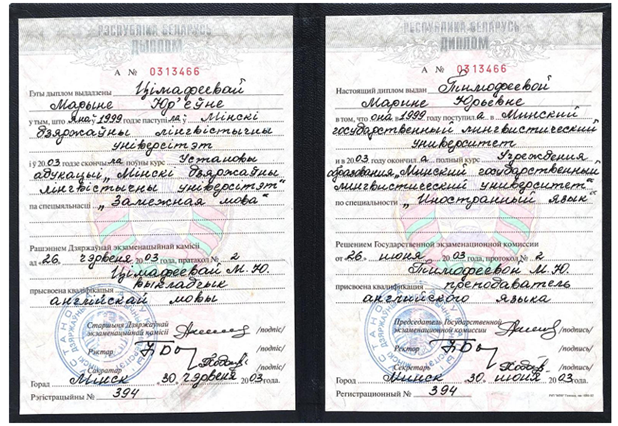 РЭСПУБЛІКА БЕЛАРУСЬ
ДЫПЛОМ
А № 0313466
Гэты дыплом выдадзены Цімафеевай
Марыне Юр'еўне
у тым, што яна ў 1999 годзе паступіла ў Мінскі
дзяржаўны лінгвістычны
універсітэт
і ў 2003 годзе скончыла поўны курс Установы
адукацыі „Мінскі дзяржаўны
лінгвістычны універсітэт“
па спецыяльнасці „Замежная мова“
Рашэннем Дзяржаўнай экзаменацыйнай камісіі
ад «26» чэрвеня 2003 года, пратакол № 2
Цімафеевай М.Ю.
прысвоена кваліфікацыя выкладчык
англійскай мовы
Старшыня Дзяржаўнай
экзаменацыйнай камісіі /подпіс/
Рэктар /подпіс/
Сакратар /подпіс/
Горад Мінск 30 чэрвеня 2003 года.
Рэгістрацыйны № 394
РЕСПУБЛИКА БЕЛАРУСЬ
ДИПЛОМ
А № 0313466
Настоящий диплом выдан Тимофеевой
Марине Юрьевне
в том, что она в 1999 году поступила в Минский
государственный лингвистический
университет
и в 2003 году окончила полный курс Учреждения
образования „Минский государственный
лингвистический университет“
по специальности „Иностранный язык“
Решением Государственной экзаменационной комиссии
от «26» июня 2003 года, протокол № 2
Тимофеевой М.Ю.
присвоена квалификация преподаватель
английского языка
Председатель Государственной
экзаменационной комиссии /подпись/
Ректор /подпись/
Секретарь /подпись/
Город Минск 30 июня 2003 года.
Регистрационный № 394